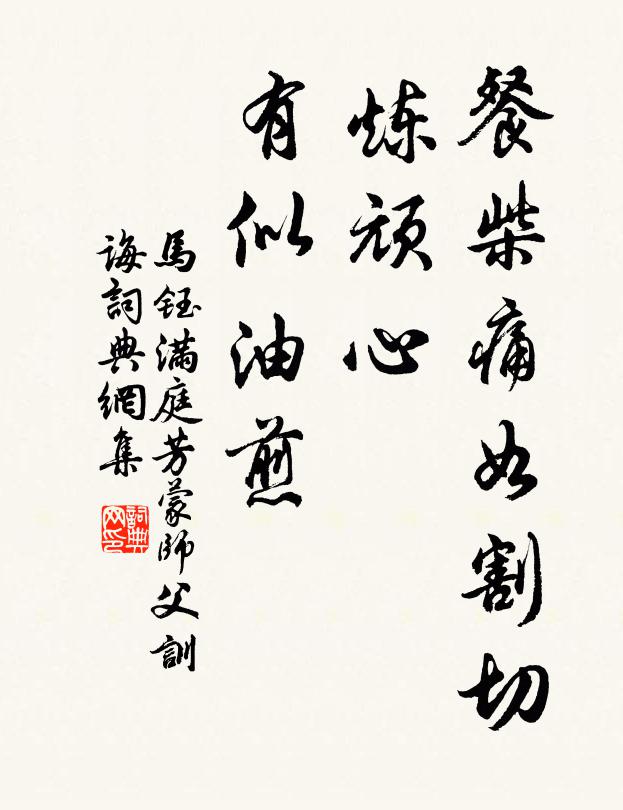 餐柴痛如割切
炼顽心
有似油煎
馬鈺滿庭芳蒙師父訓
誨詞典網集
詞典网印